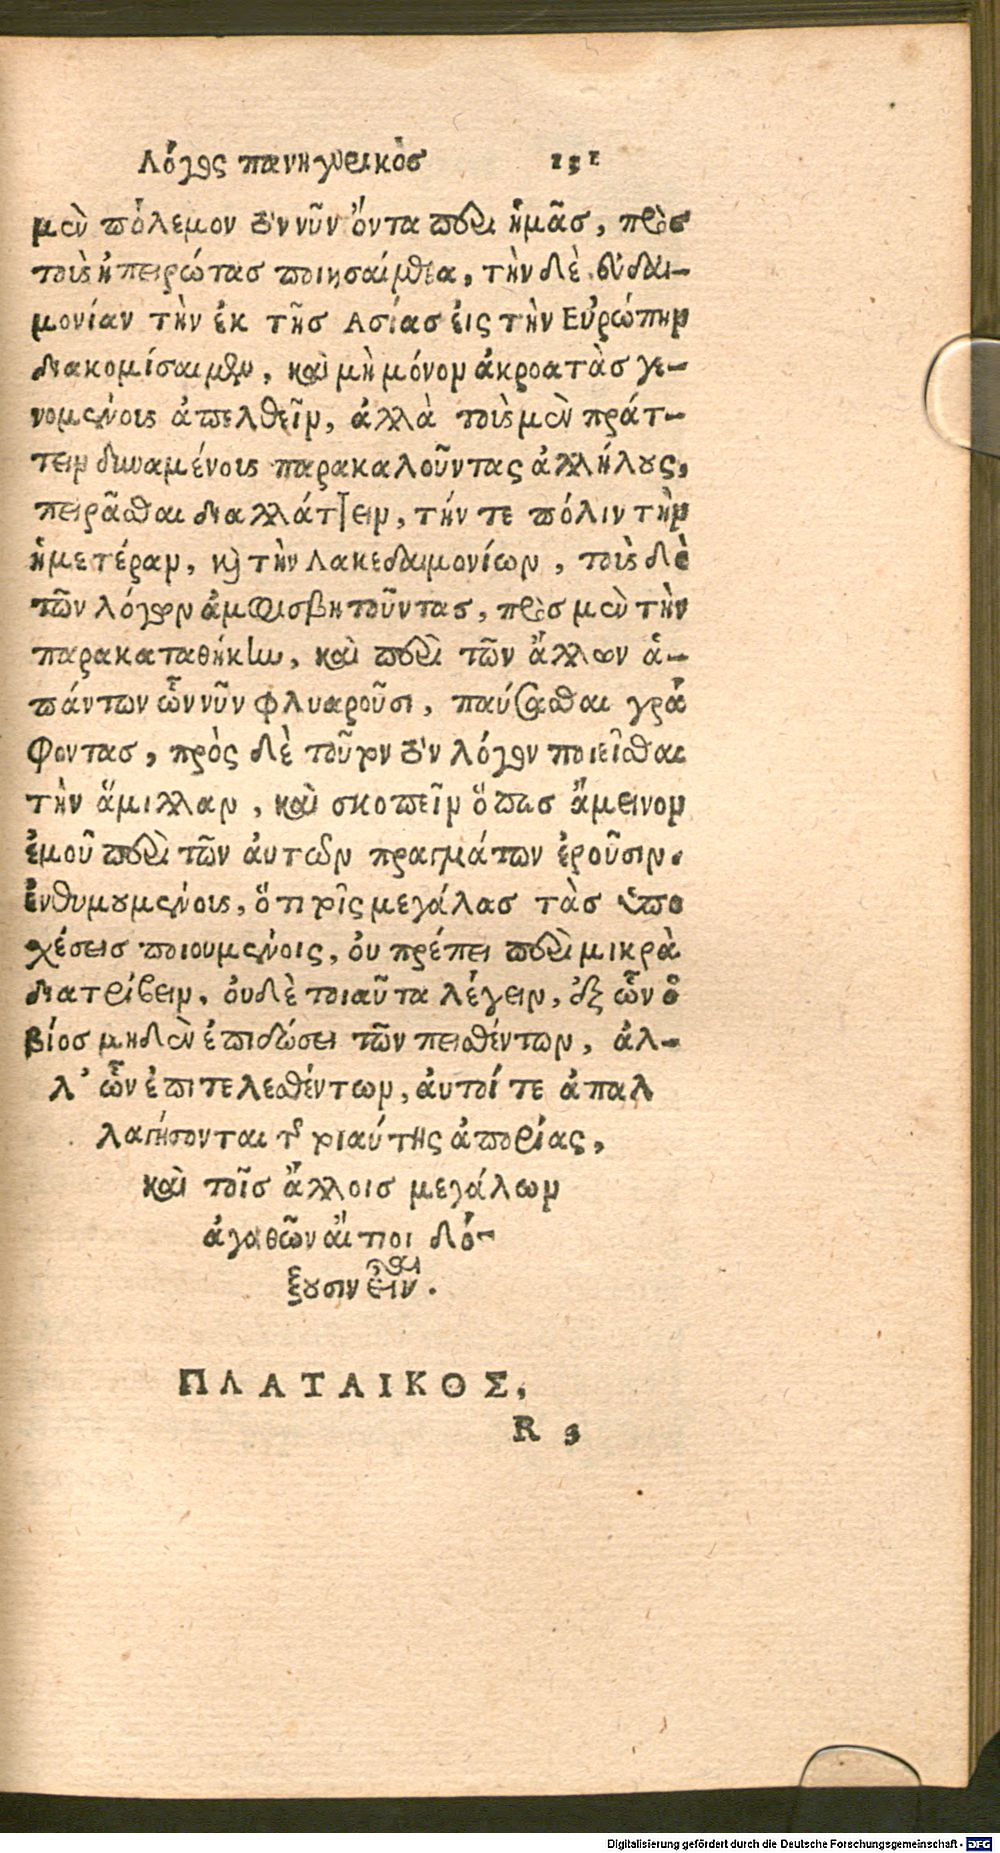 Λόγος πανηγυρικὸς 131
μὲν πόλεμον τὸν νῦν ὄντα περὶ ἡμᾶς, πρὸς
τοὺς ἠπειρώτας ποιησαίμεθα, τὴν δὲ εὐδαι-
μονίαν τὴν ἐκ τῆς Ασίας εἰς τὴν Εὐρώπην
διακομίσαιμεν, καὶ μὴ μόνον ἀκροατὰς γε-
νομένους ἀπελθεῖν, ἀλλὰ τοὺς μὲν πράτ-
τειν δυναμένους παρακαλοῦντας ἀλλήλους,
πειρᾶσθαι διαλλάττειν, τήν τε πόλιν τὴν
ἡμετέραν, καὶ τὴν Λακεδαιμονίων, τοὺς δὲ
τῶν λόγων ἀμφισβητοῦντας, πρὸς μὲν τὴν
παρακαταθήκην, καὶ περὶ τῶν ἄλλων ἁ-
πάντων ὧν νῦν φλυαροῦσι, παύσασθαι γρά
φοντας, πρὸς δὲ τοῦτον τὸν λόγον ποιεῖσθαι
τὴν ἅμιλλαν, καὶ σκοπεῖν ὅπως ἄμεινον
ἐμοῦ περὶ τῶν ἀυτῶν πραγμάτων ἐροῦσιν.
ἐνθυμουμένους, ὅτι τοῖς μεγάλας τὰς ὑπο
χέσεις ποιουμένοις, ὀυ πρέπει περὶ μικρὰ
διατρίβειν, ὀυδὲ τοιαῦτα λέγειν, ἐξ ὧν ὁ
βίος μηδὲν ἐπιδώσει τῶν πεισθέντων, ἀλ-
λ' ὧν ἐπιτελεσθέντων, ἀυτοί τε ἀπαλ
λαγήσονται τῆς τοιαύτης ἀπορίας,
καὶ τοῖς ἄλλοις μεγάλων
ἀγαθῶν ἄιτιοι δό-
ξουσιν εἶναι.
ΠΛΑΤΑΙΚΟΣ,
R 3
Digitalisierung gefördert durch die Deutsche Forschungsgemeinschaft - DFG